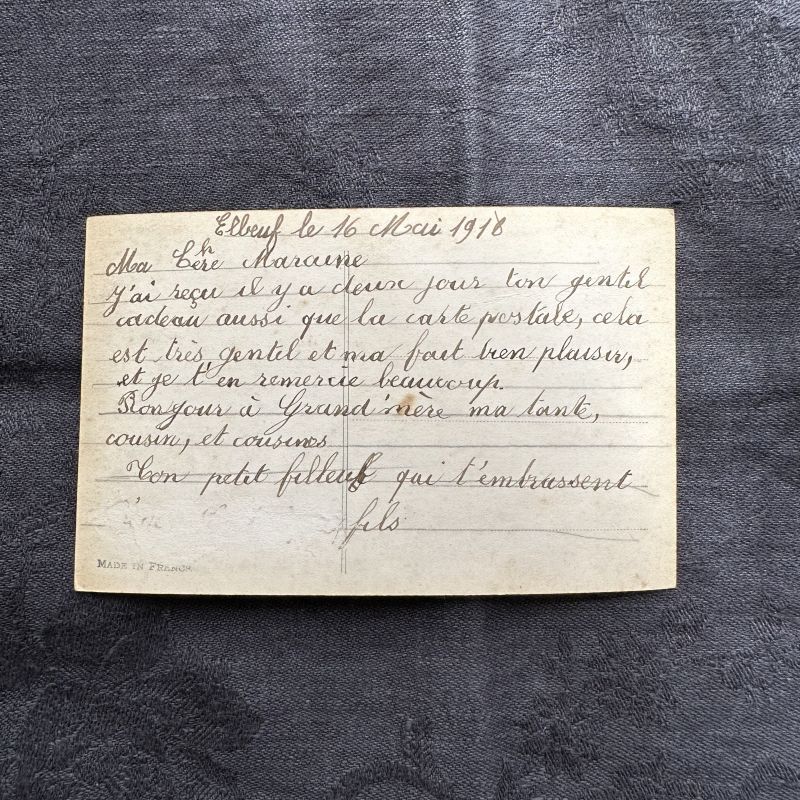 Elbeuf le 16 Mai 1918
Ma Chère Maraine
J'ai reçu il y a deux jour ton gentil
cadeau aussi que la carte postale, cela
est très gentil et ma fait bien plaisir,
et je t'en remercie beaucoup.
Bonjour à Grand'mère ma tante,
cousin, et cousines
Ton petit filleul qui t'embrassent
fils
MADE IN FRANCE